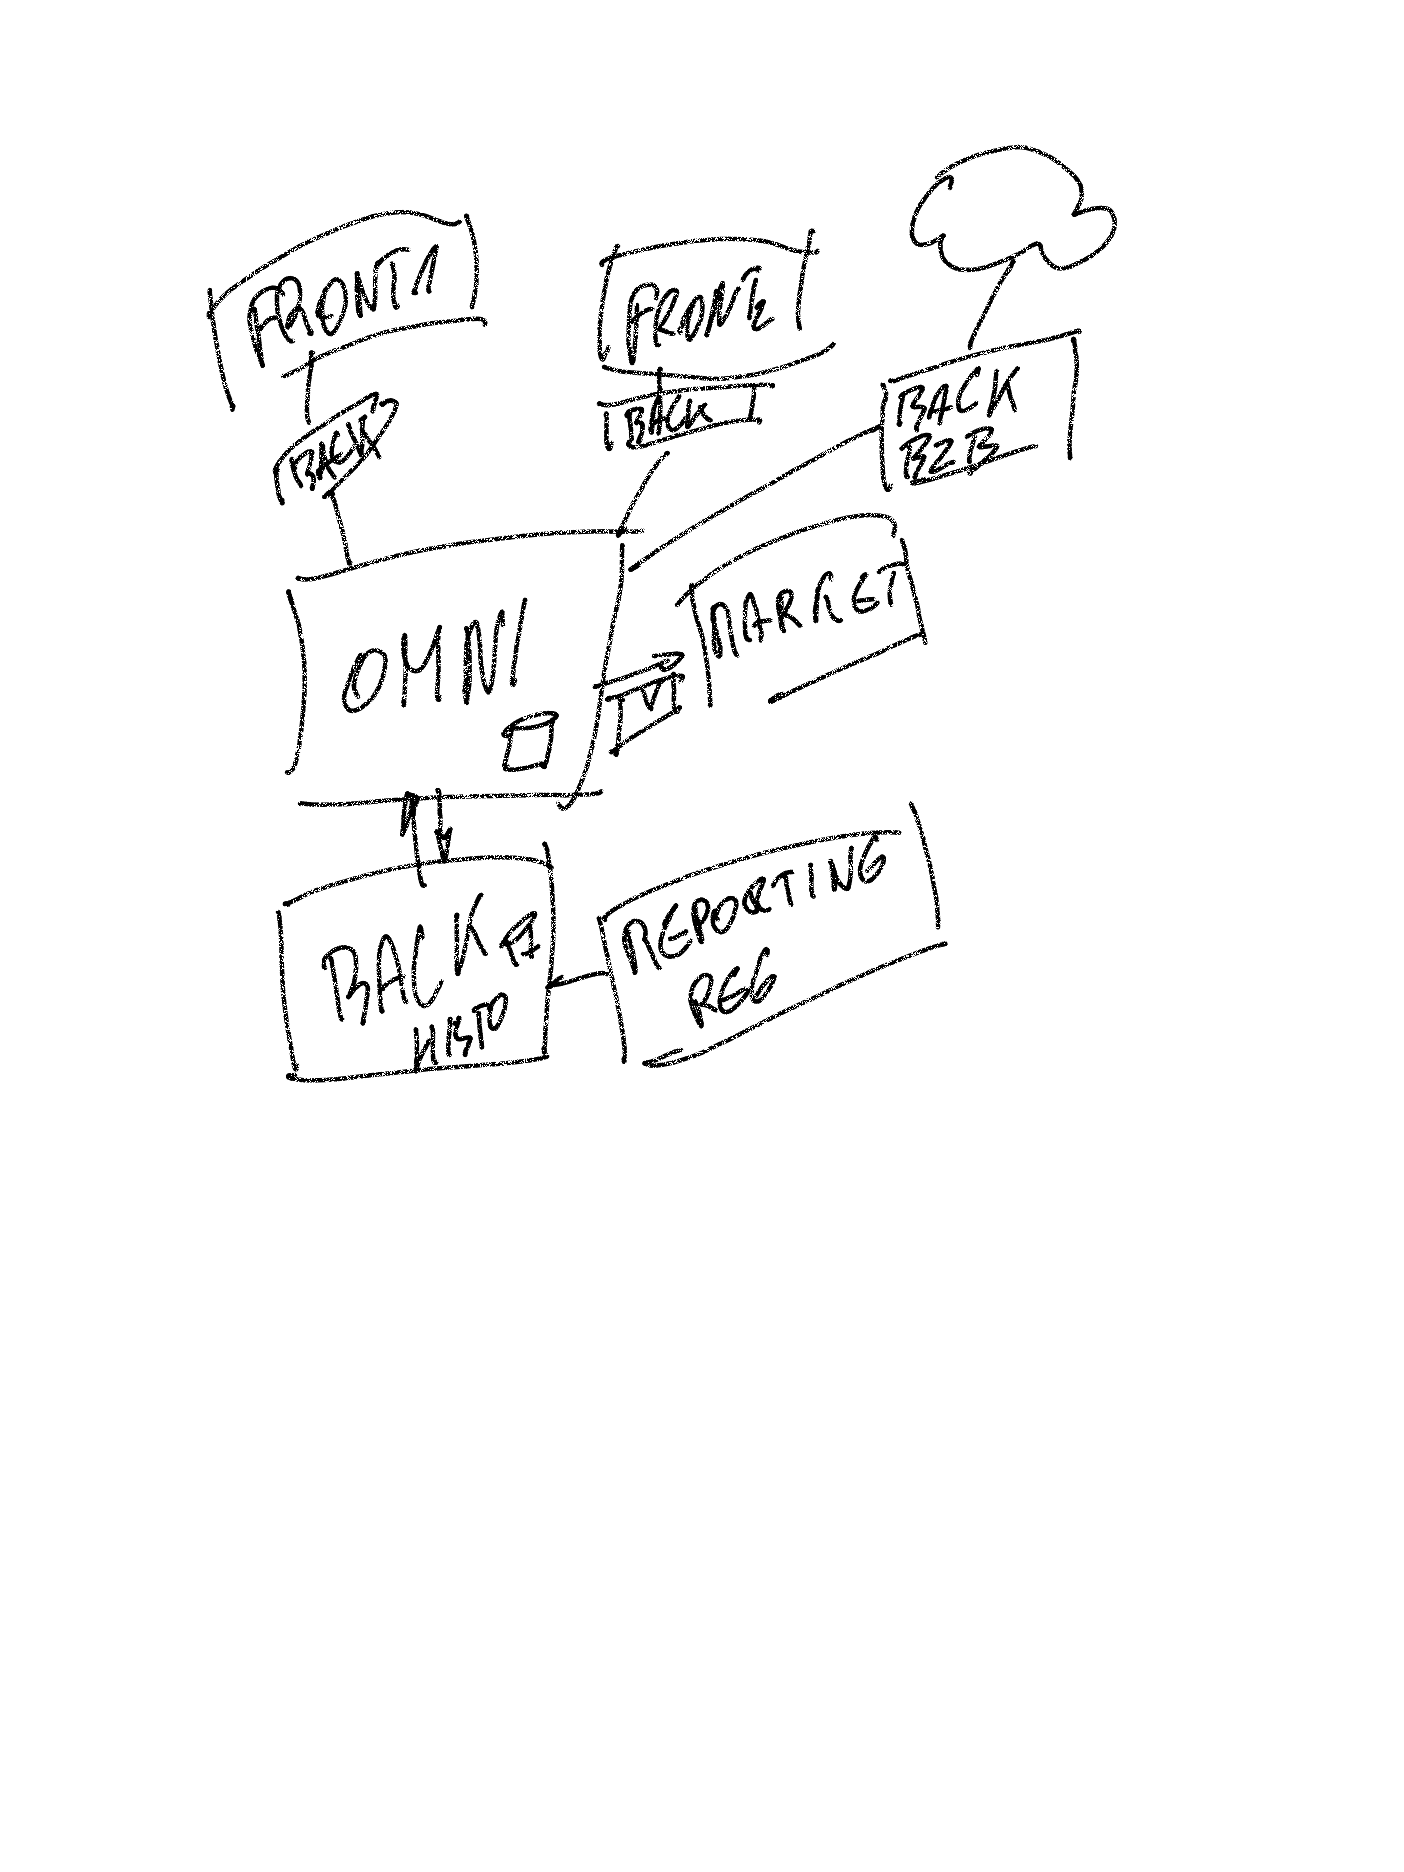 FRONT1
FRONT2
BACK
BACK
BACK
B2B
OMNI
MARKET
BACK
HISTO
REPORTING
REG